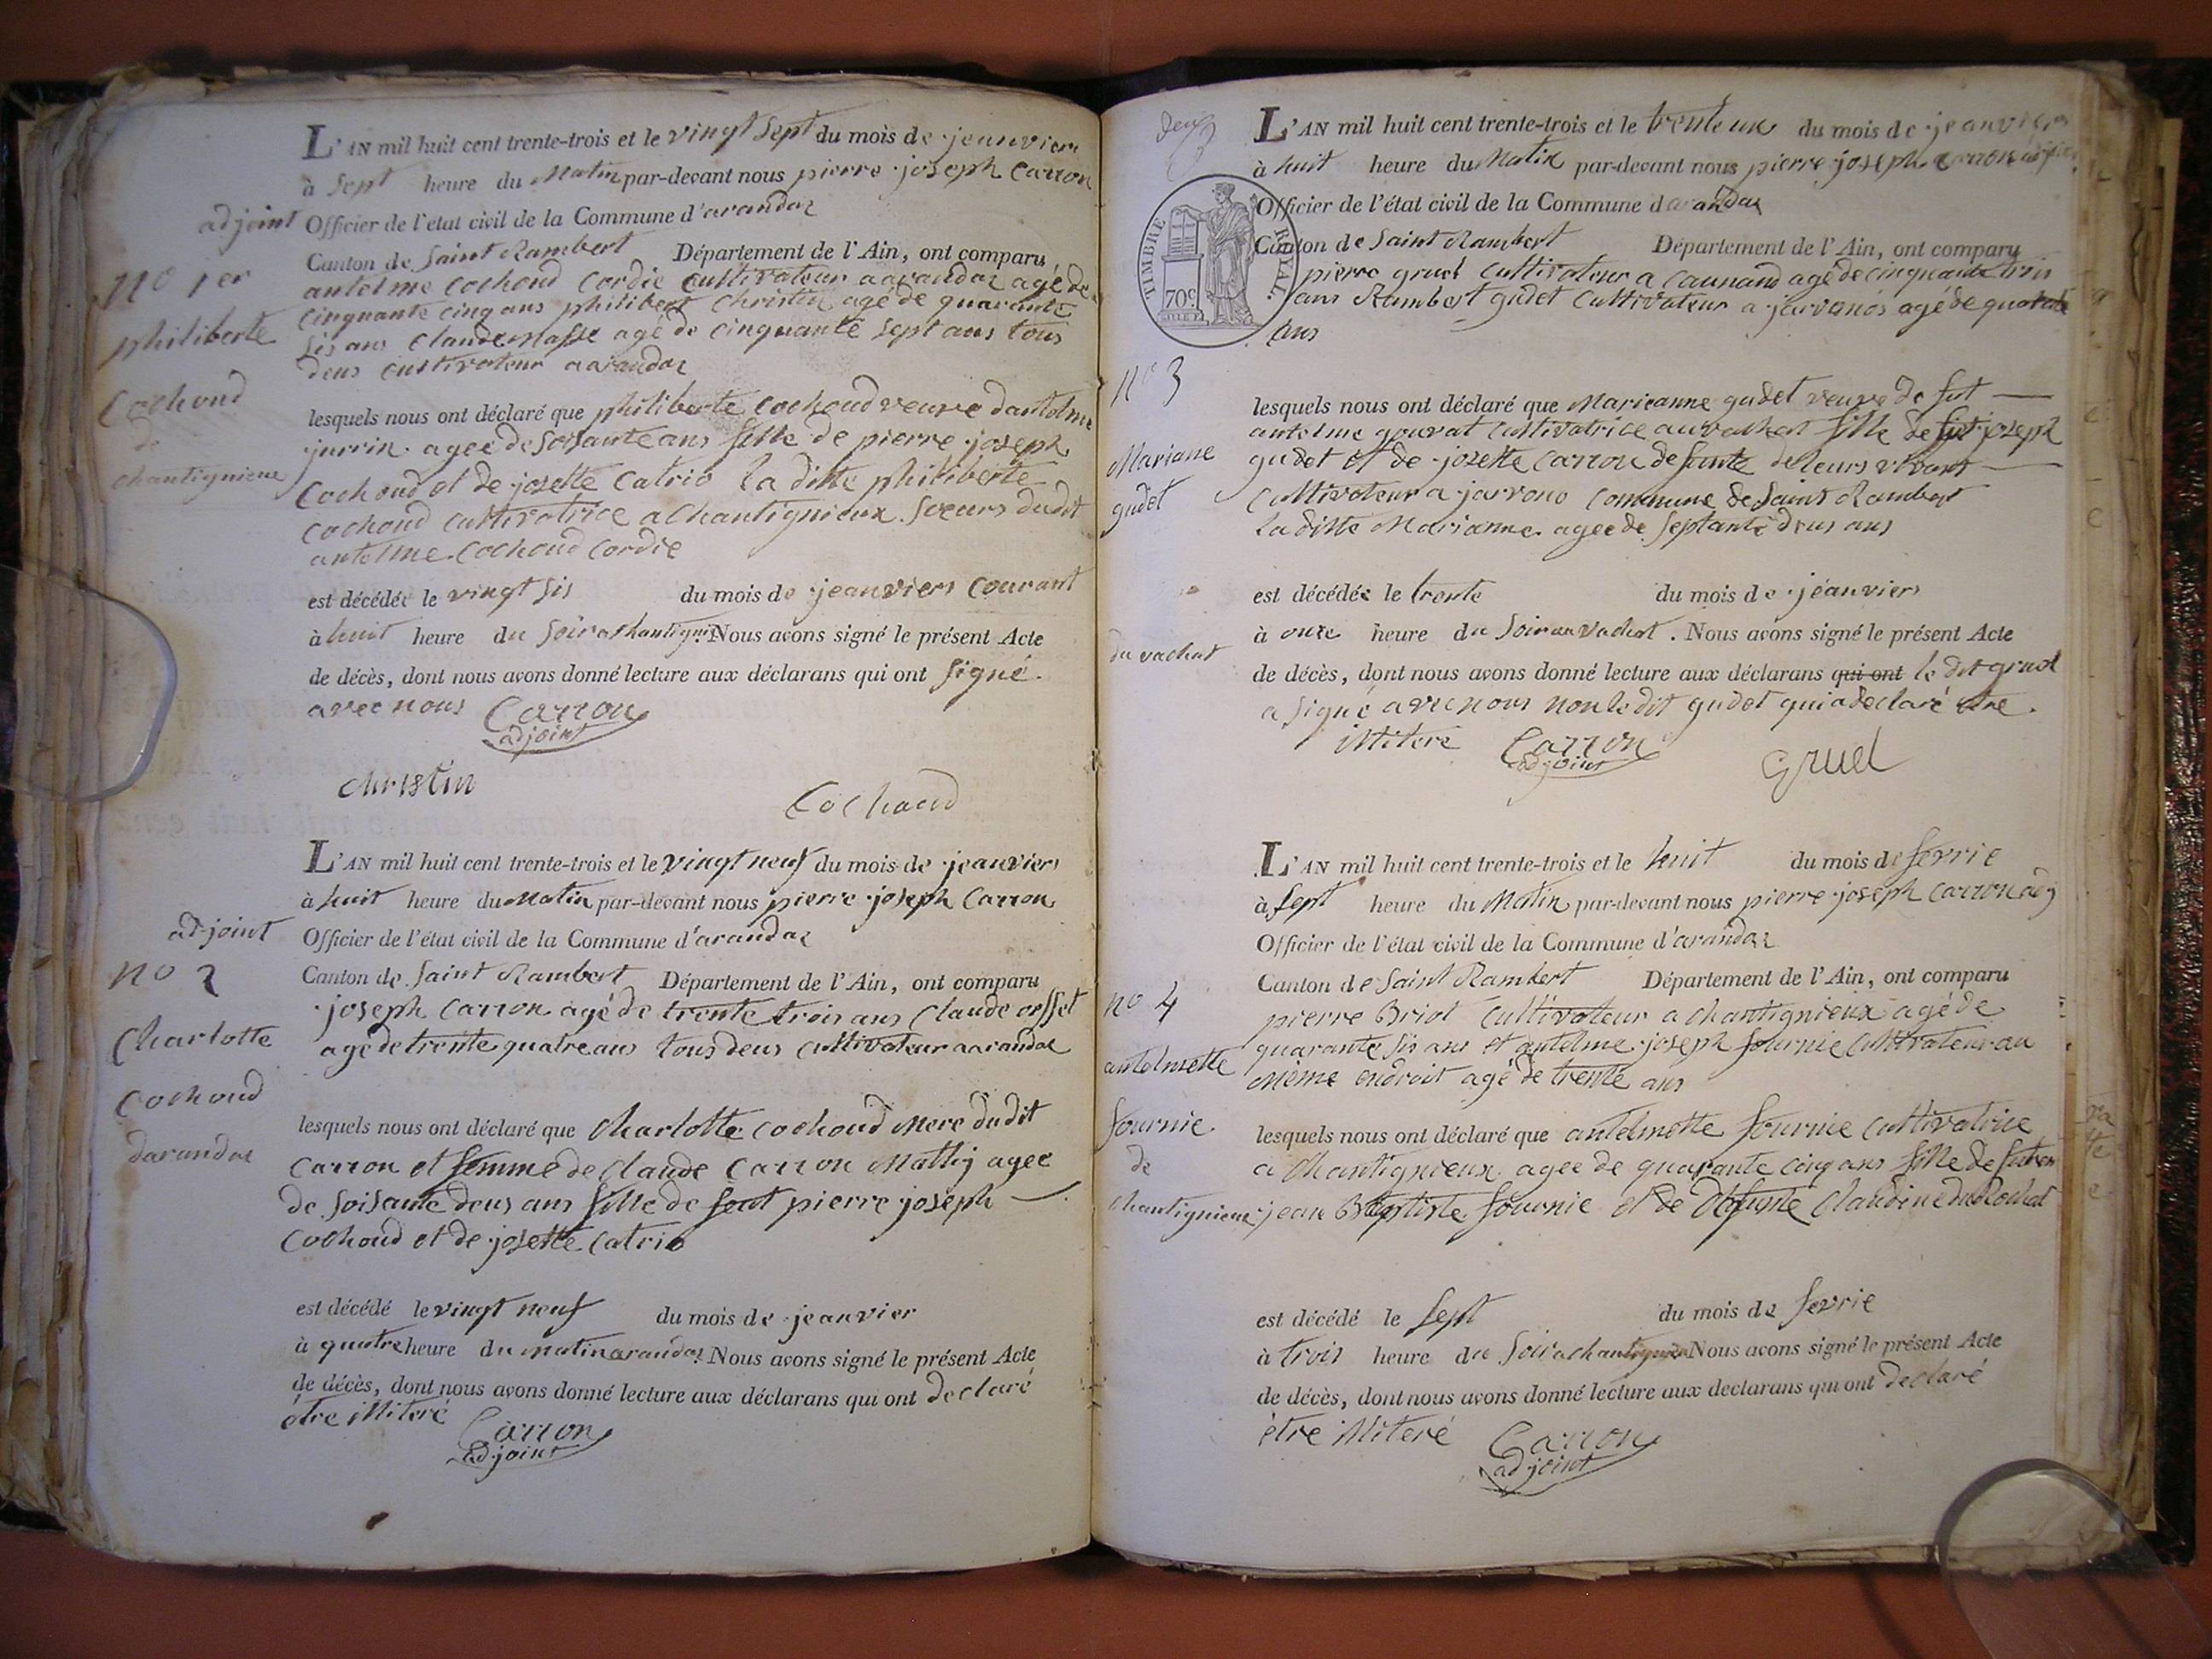 L'AN mil huit cent trente-trois et le vingt sept du mois de jeanvier
à sept heure du Matin par-devant nous pierre joseph Carron
adjoint Officier de l'état civil de la Commune d'arandaz
Canton de Saint Rambert Département de l'Ain, ont comparu
antelme Cochoud Cordie Cultivateur a arandaz agé de
Cinquante cinq ans philibert Christin agé de quarante
sis ans Claude Masse agé de Cinquante sept ans tous
deus Cultivateur a arandaz
no 1er
philiberte
Cochoud
de
Chantignieux
lesquels nous ont déclaré que philiberte Cochoud veuve dantelme
jurrin agée de Soisante ans fille de pierre joseph
Cochoud et de josette Catrio la ditte philiberte
Cochoud Cultivatrice a Chantignieux soeurs dudit
antelme Cochoud Cordie
est décédée le vingt sis du mois de jeanviers Courant
à huit heure du Soir a Chantigni. Nous avons signé le présent Acte
de décès, dont nous avons donné lecture aux déclarans qui ont signé
avec nous Carron
adjoint
Christin
Cochoud
L'AN mil huit cent trente-trois et le vingt neuf du mois de jeanviers
à huit heure du Matin par-devant nous pierre joseph Carron
adjoint Officier de l'état civil de la Commune d'arandaz
Canton de Saint Rambert Département de l'Ain, ont comparu
joseph Carron agé de trente trois ans Claude orsset
agé de trente quatre ans tous deus Cultivateur a arandaz
no 2
Charlotte
Cochoud
darandaz
lesquels nous ont déclaré que Charlotte Cochoud Mere dudit
Carron et femme de Claude Carron Mathy agee
de Soisante deus ans fille de feut pierre joseph
Cochoud et de josette Catrio
est décédé le vingt neuf du mois de jeanvier
à quatre heure du matin a arandaz. Nous avons signé le présent Acte
de décès, dont nous avons donné lecture aux déclarans qui ont declaré
être iliteré Carron
adjoint
L'AN mil huit cent trente-trois et le trente un du mois de jeanvier
à huit heure du Matin par-devant nous pierre joseph Carron
Officier de l'état civil de la Commune darandaz
Canton de Saint Rambert Département de l'Ain, ont comparu
pierre gruel Cultivateur a agé de cinquante trois
ans Rambert gudet Cultivateur a jarvonos agé de quarante
ans
TIMBRE ROYAL.
70c
no 3
Mariane
gudet
du vachat
lesquels nous ont déclaré que Marieanne gudet veuve de fut
antelme gouvat Cultivatrice au vachat fille de fut joseph
gudet et de josette Carron defunte de leurs vivant
Cultivateur a jarvono Commune de Saint Rambert
la ditte Marianne agee de Septante deus ans
est décédée le trente du mois de jéanviers
à onze heure du Soir au vachat. Nous avons signé le présent Acte
de décès, dont nous avons donné lecture aux déclarans qui ont le dit gruel
a signé avec nous non le dit gudet qui a declaré etre
iliteré Carron
adjoint
Gruel
L'AN mil huit cent trente-trois et le huit du mois de fevrie
à sept heure du Matin par-devant nous pierre joseph Carron adj
Officier de l'état civil de la Commune d'arandaz
Canton de Saint Rambert Département de l'Ain, ont comparu
pierre Briot Cultivateur a Chantignieux agé de
quarante sis ans et antelme joseph fournie Cultivateur au
Même endroit agé de trente ans
no 4
antelmette
fournie
de
Chantignieux
lesquels nous ont déclaré que antelmette fournie Cultivatrice
a Chantignieux agee de quarante cinq ans fille de
jean Baptiste fournie et de defunte Claudine duRochat
est décédé le sept du mois de fevrie
à trois heure du Soir a chantignieux Nous avons signé le présent Acte
de décès, dont nous avons donné lecture aux declarans qui ont declaré
être iliteré Carron
adjoint